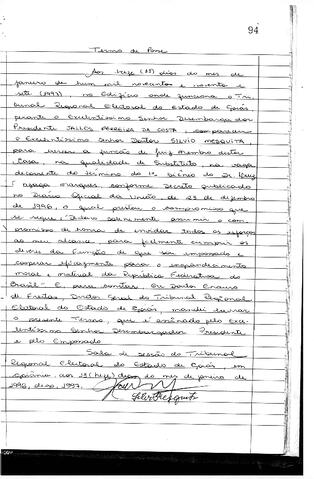 94
Termo de Posse
Aos treze (13) dias do mês de
janeiro de hum mil novecentos e noventa e
sete (1997), no Edifício onde funciona o Tri-
bunal Regional Eleitoral do Estado de Goiás,
perante o Excelentíssimo Senhor Desembargador
Presidente JALLES FERREIRA DA COSTA, compareceu
o Excelentíssimo Senhor Doutor SILVIO MESQUITA
para exercer a função de Juiz membro desta
Casa, na qualidade de Substituto, na vaga
decorrente do término do 1º biênio do Dr.
marques, conforme Decreto publicado
no Diário Oficial da União, de 23 de dezembro
de 1996, o qual prestou o compromisso que
se segue: "Declaro solenemente assumir o com-
promisso de honra de envidar todos os esforços
ao meu alcance, para fielmente cumprir os
deveres da função de que sou empossado e
cooperar eficazmente para o engrandecimento
moral e material da República Federativa do
Brasil". E, para constar, Eu
de Freitas, Diretor Geral do Tribunal Regional
Eleitoral do Estado de Goiás, mandei lavrar
o presente Termo, que é assinado pelo Exce-
lentíssimo Senhor Desembargador Presidente
e pelo Empossado.
Sala de sessão do Tribunal
Regional Eleitoral do Estado de Goiás, em
Goiânia, aos 13 (treze) dias do mês de janeiro de
1996, digo, 1997.